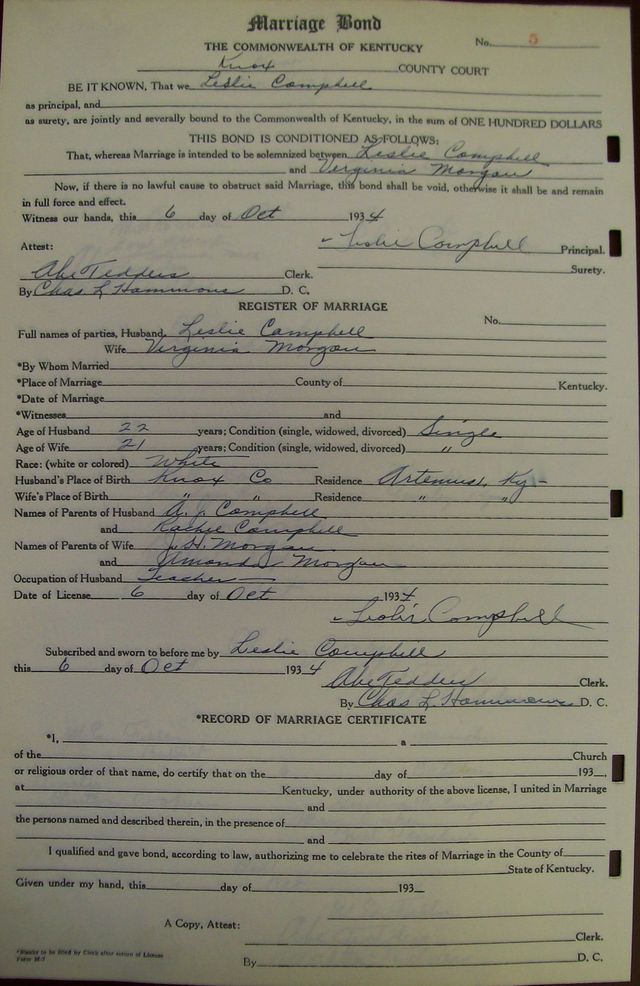 Marriage Bond
THE COMMONWEALTH OF KENTUCKY
No. 5
Knox COUNTY COURT
BE IT KNOWN, That we Leslie Campbell
as principal, and
as surety, are jointly and severally bound to the Commonwealth of Kentucky, in the sum of ONE HUNDRED DOLLARS
THIS BOND IS CONDITIONED AS FOLLOWS:
That, whereas Marriage is intended to be solemnized between Leslie Campbell
and Virginia Morgan
Now, if there is no lawful cause to obstruct said Marriage, this bond shall be void, otherwise it shall be and remain
in full force and effect.
Witness our hands, this 6 day of Oct 1934
Leslie Campbell Principal.
Attest:
Surety.
Abe Tedders Clerk.
By Chas L Hammons D. C.
REGISTER OF MARRIAGE
No.
Full names of parties, Husband, Leslie Campbell
Wife Virginia Morgan
*By Whom Married
*Place of Marriage County of Kentucky.
*Date of Marriage
*Witnesses and
Age of Husband 22 years; Condition (single, widowed, divorced) Single
Age of Wife 21 years; Condition (single, widowed, divorced) "
Race: (white or colored) White
Husband's Place of Birth Knox Co Residence Artemus, Ky -
Wife's Place of Birth " " Residence " "
Names of Parents of Husband A. J. Campbell
and Rachel Campbell
Names of Parents of Wife J. H. Morgan
and Amanda Morgan
Occupation of Husband Teacher
Date of License 6 day of Oct 1934
Leslie Campbell
Subscribed and sworn to before me by Leslie Campbell
this 6 day of Oct 1934
Abe Tedders Clerk.
By Chas L. Hammons D. C.
*RECORD OF MARRIAGE CERTIFICATE
*I, a
of the Church
or religious order of that name, do certify that on the day of 193 ,
at Kentucky, under authority of the above license, I united in Marriage
and
the persons named and described therein, in the presence of
and
I qualified and gave bond, according to law, authorizing me to celebrate the rites of Marriage in the County of
State of Kentucky.
Given under my hand, this day of 193
A Copy, Attest:
Clerk.
*Blanks to be filled by Clerk after return of License
Form M-7
By D. C.